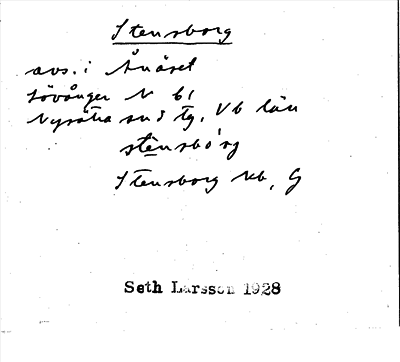 Stensborg
avs. i Ånäset
Lövånger N bl
Nysätra sns tg, Vb län
stensbórg
Stensborg kb, G
Seth Larsson 1928